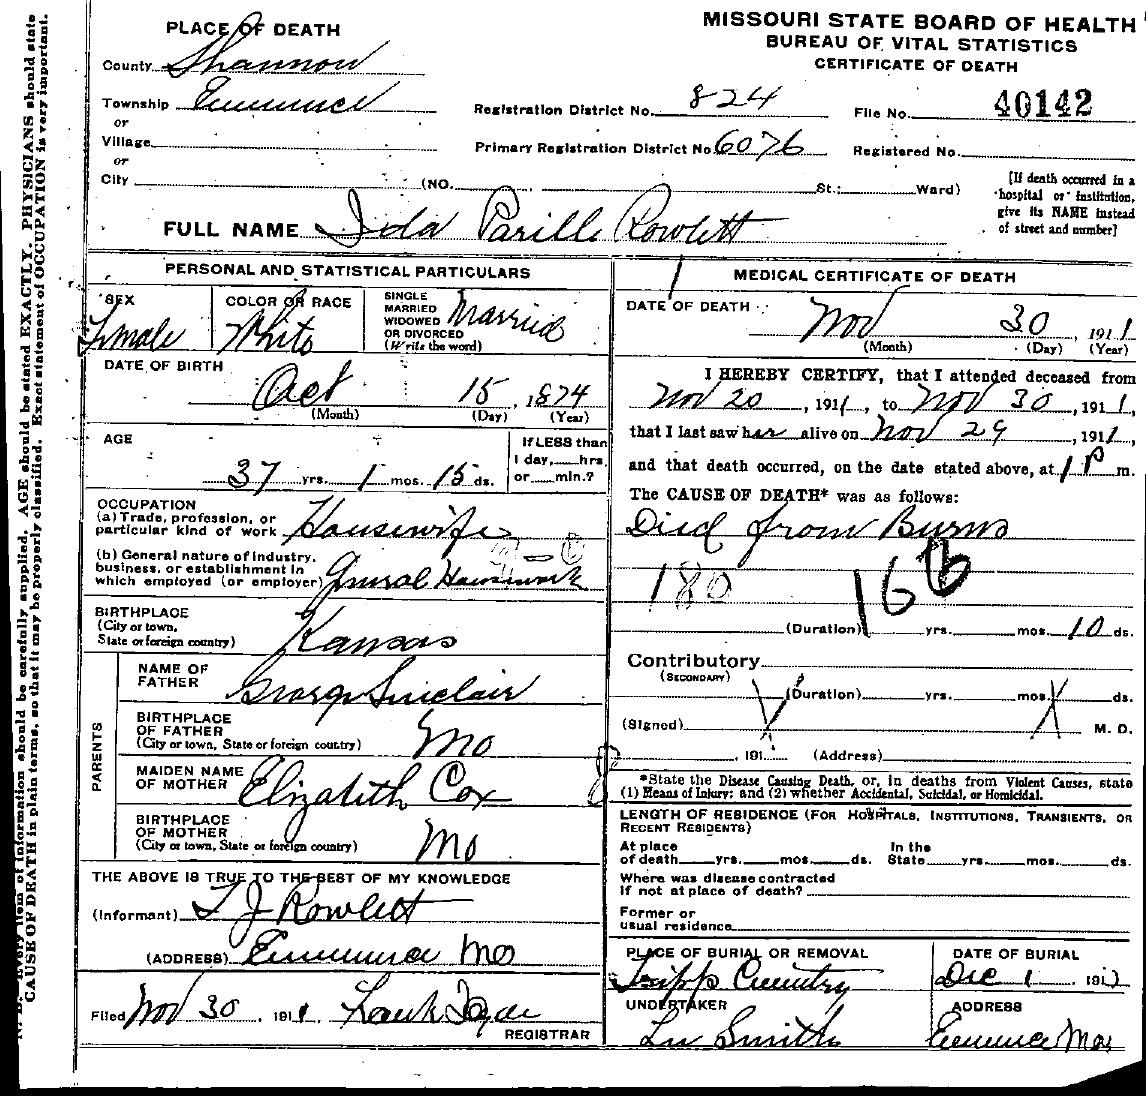 MISSOURI STATE BOARD OF HEALTH
BUREAU OF VITAL STATISTICS
CERTIFICATE OF DEATH
PLACE OF DEATH
County Shannon
Township Eminence
or
Village
or
City (NO. St.; Ward)
Registration District No. 824
File No. 40142
Primary Registration District No. 6076
Registered No.
[If death occurred in a
hospital or institution,
give its NAME instead
of street and number]
FULL NAME Ida Parille Rowlett
PERSONAL AND STATISTICAL PARTICULARS
SEX
Female
COLOR OR RACE
White
SINGLE
MARRIED
WIDOWED
OR DIVORCED
(Write the word)
Married
DATE OF BIRTH
Oct 15, 1874
(Month) (Day) (Year)
AGE
37 yrs. 1 mos. 15 ds.
If LESS than
1 day, hrs.
or min.?
OCCUPATION
(a) Trade, profession, or
particular kind of work Housewife
(b) General nature of industry,
business, or establishment in
which employed (or employer) General Housework
BIRTHPLACE
(City or town,
State or foreign country) Kansas
PARENTS
NAME OF
FATHER George Sinclair
BIRTHPLACE
OF FATHER
(City or town, State or foreign country) Mo
MAIDEN NAME
OF MOTHER Elizabeth Cox
BIRTHPLACE
OF MOTHER
(City or town, State or foreign country) Mo
THE ABOVE IS TRUE TO THE BEST OF MY KNOWLEDGE
(Informant) T J Rowlett
(ADDRESS) Eminence Mo
Filed Nov 30, 1911 Frank
REGISTRAR
MEDICAL CERTIFICATE OF DEATH
DATE OF DEATH
Nov 30, 1911
(Month) (Day) (Year)
I HEREBY CERTIFY, that I attended deceased from
Nov 20, 1911, to Nov 30, 1911,
that I last saw her alive on Nov 29, 1911,
and that death occurred, on the date stated above, at 1 P m.
The CAUSE OF DEATH* was as follows:
Died from Burns
180 16 b
(Duration) yrs. mos. 10 ds.
Contributory
(SECONDARY)
(Duration) yrs. mos. ds.
(Signed) M. D.
, 191 (Address)
*State the Disease Causing Death, or, in deaths from Violent Causes, state
(1) Means of Injury; and (2) whether Accidental, Suicidal, or Homicidal.
LENGTH OF RESIDENCE (FOR HOSPITALS, INSTITUTIONS, TRANSIENTS, OR
RECENT RESIDENTS)
At place
of death yrs. mos. ds.
In the
State yrs. mos. ds.
Where was disease contracted
if not at place of death?
Former or
usual residence
PLACE OF BURIAL OR REMOVAL
Tripp Cemetry
DATE OF BURIAL
Dec 1, 191
UNDERTAKER
Lu Smith
ADDRESS
Eminence Mo
N. B. Every item of information should be carefully supplied. AGE should be stated EXACTLY. PHYSICIANS should state
CAUSE OF DEATH in plain terms, so that it may be properly classified. Exact statement of OCCUPATION is very important.